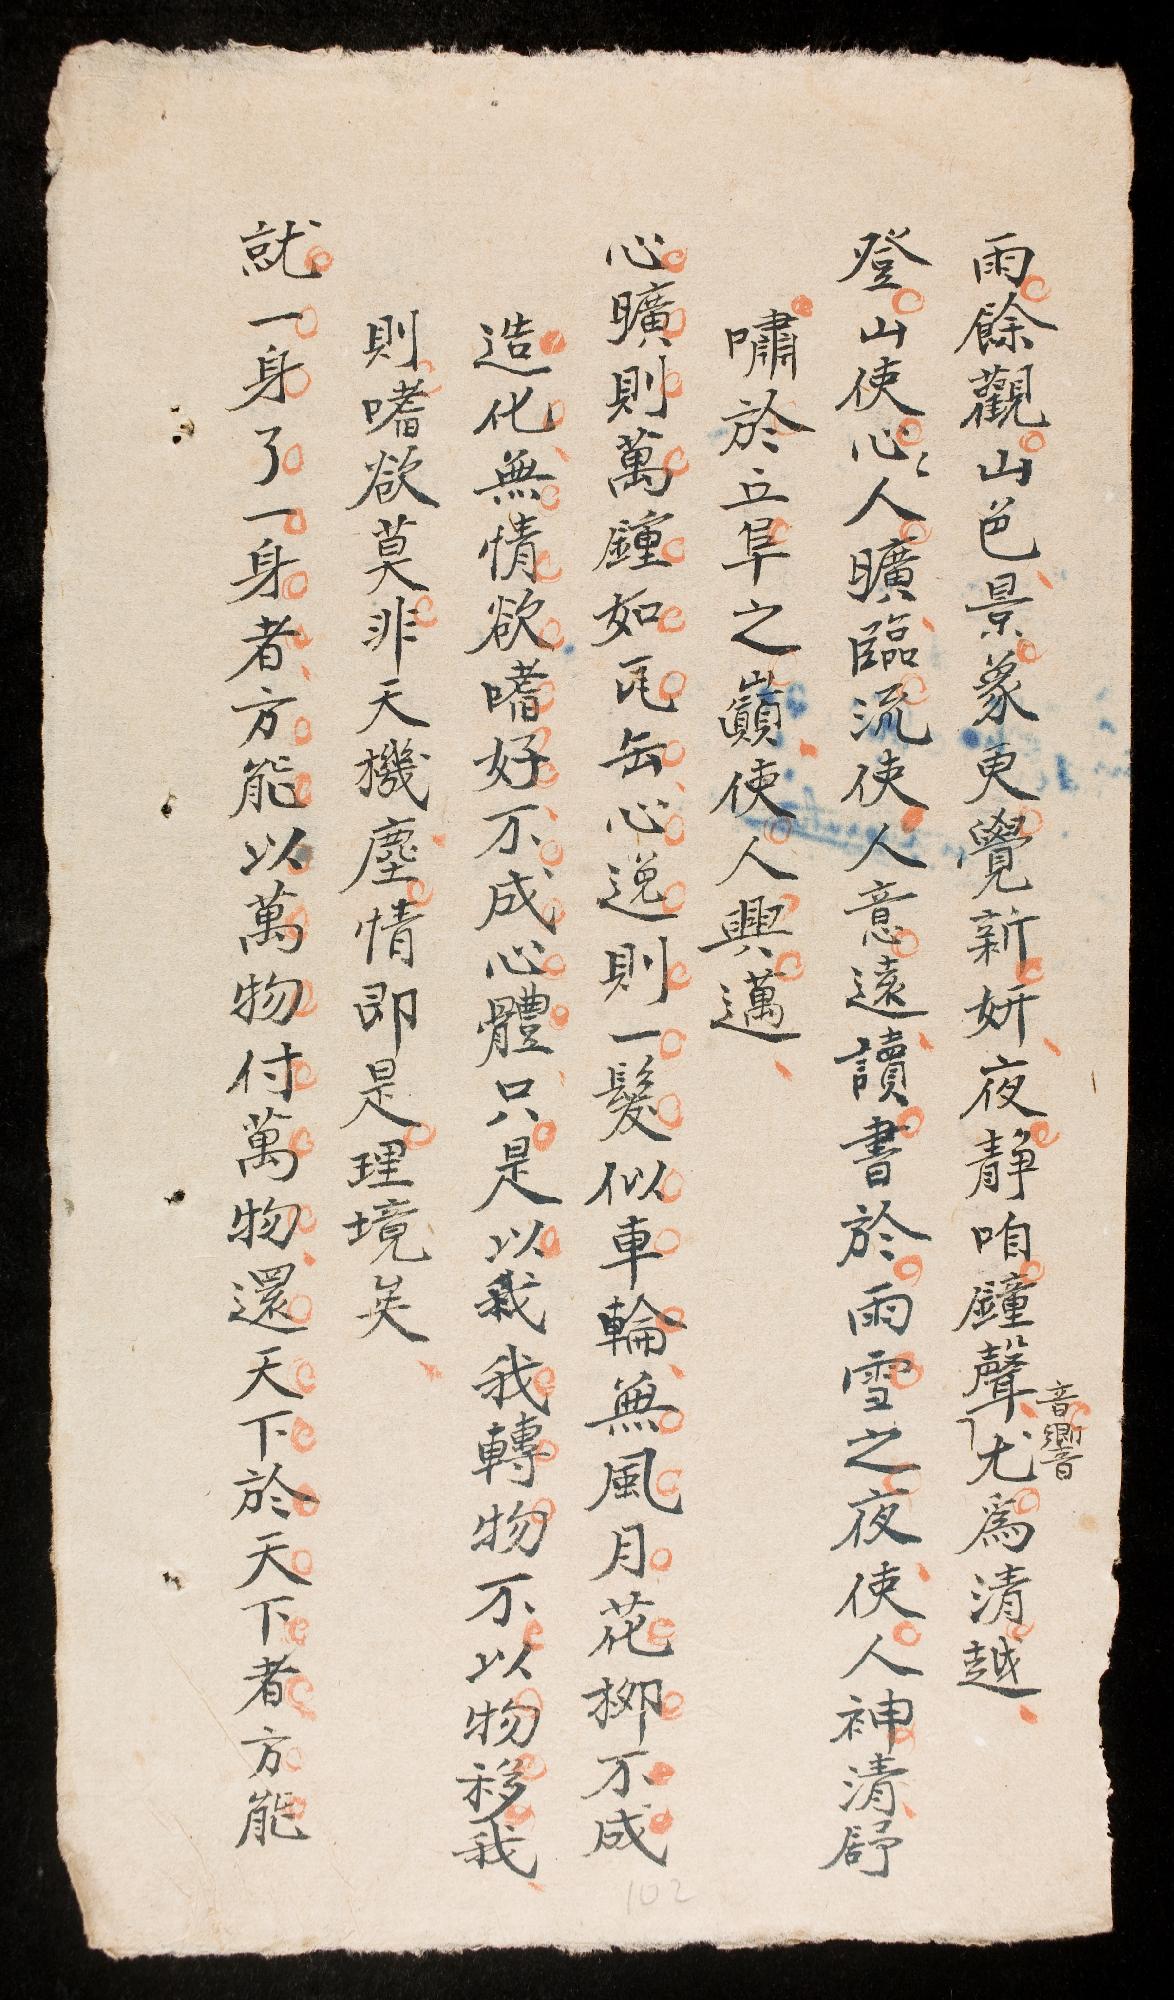 雨餘觀山色景象更覺新妍夜靜咱鐘聲尤爲清越
音響
登山使心人曠臨流使人意遠讀書於雨雪之夜使人神清舒
嘯於丘阜之巔使人興邁
心曠則萬鍾如瓦缶心逸則一髮似車輪無風月花柳不成
造化無情欲嗜好不成心體只是以我我轉物不以物移我
則嗜欲莫非天機塵情即是理境矣
就一身了一身者方能以萬物付萬物還天下於天下者方能
102